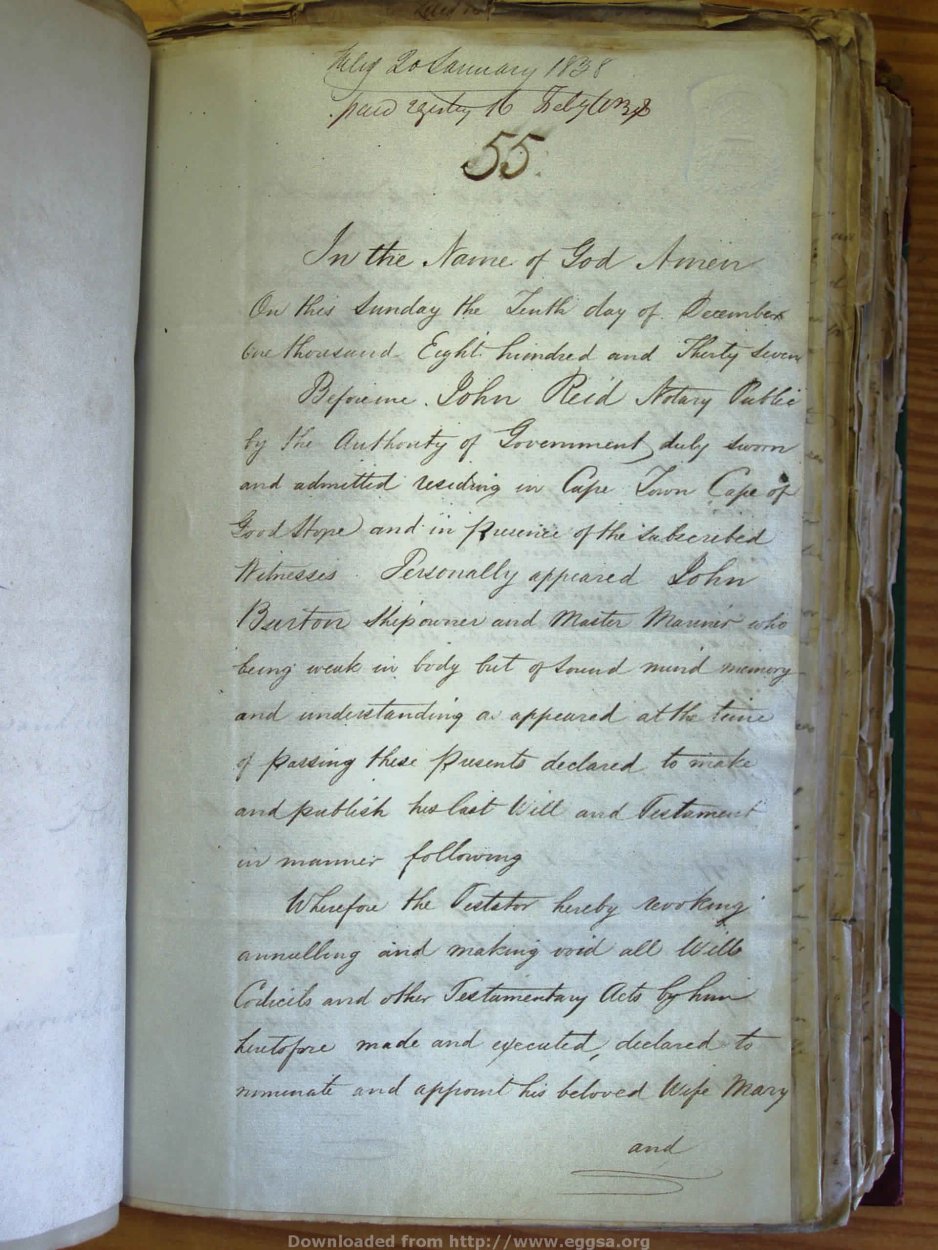 Filed 20 January 1838
paid registry 16 Feby 1838
55.
In the Name of God Amen
On this Sunday the Tenth day of December
One thousand Eight hundred and Thirty Seven
Before me John Reid Notary Public
by the Authority of Government duly sworn
and admitted residing in Cape Town Cape of
Good Hope and in presence of the subscribed
Witnesses Personally appeared John
Burton Shipowner and Master Mariner who
being weak in body but of sound mind memory
and understanding as appeared at the time
of passing these presents declared to make
and publish his last Will and Testament
in manner following
Wherefore the Testator hereby revoking
annulling and making void all Wills
Codicils and other Testamentary Acts by him
heretofore made and executed, declared to
nominate and appoint his beloved Wife Mary
and
Downloaded from http://www.eggsa.org